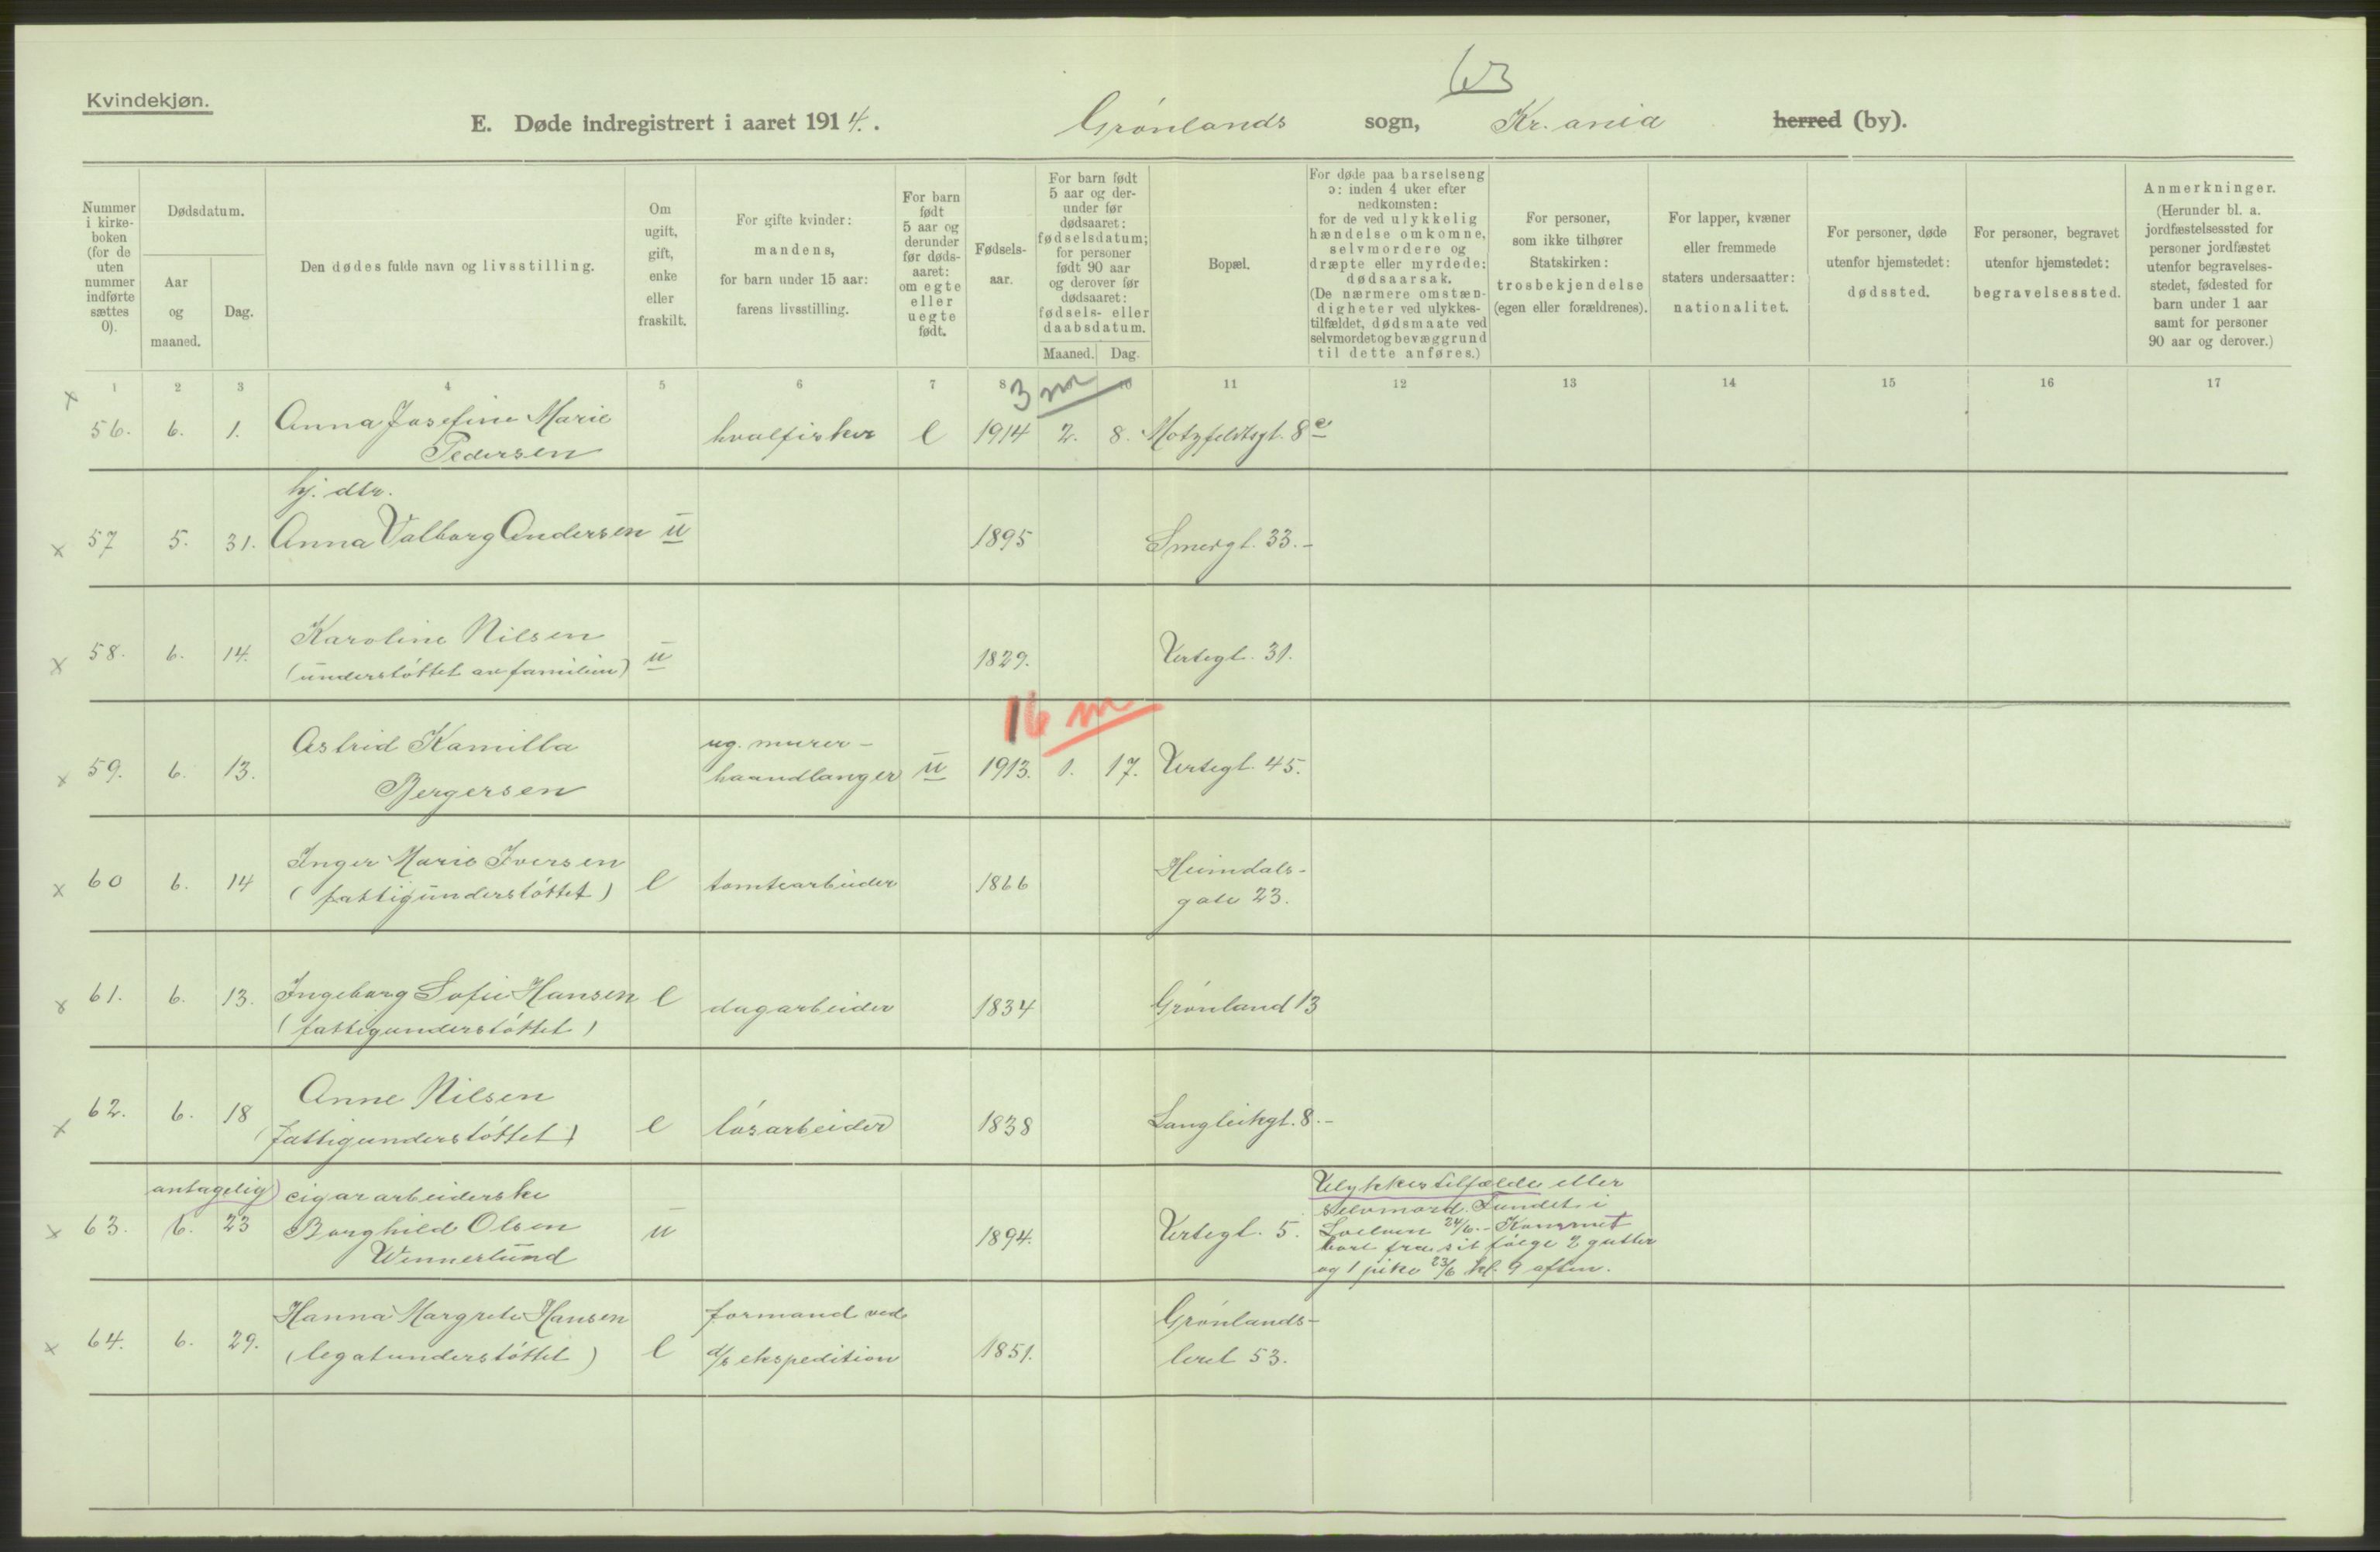 63
Kvindekjøn.
E. Døde indregistrert i aaret 1914. Grønlands sogn, Kr.ania herred (by).
Nummer i kirke-boken (for de uten nummer indførte sættes 0).
Dødsdatum.
Aar og maaned.
Dag.
Den dødes fulde navn og livsstilling.
Om ugift, gift, enke eller fraskilt.
For gifte kvinder: mandens, for barn under 15 aar: farens livsstilling.
For barn født 5 aar og derunder før døds-aaret: om egte eller uegte født.
Fødsels-aar.
For barn født 5 aar og der-under før dødsaaret: fødselsdatum; for personer født 90 aar og derover før dødsaaret: fødsels- eller daabsdatum.
Maaned. Dag.
Bopæl.
For døde paa barselseng ɔ: inden 4 uker efter nedkomsten: for de ved ulykkelig hændelse omkomne, selvmordere og dræpte eller myrdede: dødsaarsak. (De nærmere omstæn-digheter ved ulykkes-tilfældet, dødsmaate ved selvmordet og bevæggrund til dette anføres.)
For personer, som ikke tilhører Statskirken: trosbekjendelse (egen eller forældrenes).
For lapper, kvæner eller fremmede staters undersaatter: nationalitet.
For personer, døde utenfor hjemstedet: dødssted.
For personer, begravet utenfor hjemstedet: begravelsessted.
Anmerkninger. (Herunder bl. a. jordfæstelsessted for personer jordfæstet utenfor begravelses-stedet, fødested for barn under 1 aar samt for personer 90 aar og derover.)
1 2 3 4 5 6 7 8 10 11 12 13 14 15 16 17
3 m
x 56. 6. 1. Anna Josefine Marie hvalfisker e 1914 2. 8. Motzfeldtsgt. 8 e
Pedersen
hj. dtr.
x 57 5. 31. Anna Valborg Andersen u 1895 Smedgt. 33.-
x 58. 6. 14. Karoline Nilsen u 1829. Urtegt. 31.
(understøttet av familien)
16 m
x 59. 6. 13. Astrid Kamilla ug. murer-
Bergersen haandlanger u 1913. 1. 17. Urtegt. 45.
x 60 6. 14 Inger Marie Iversen e tomtearbeider 1866 Heimdals-
(fattigunderstøttet) gate 23.
x 61. 6. 13. Ingeborg Sofie Hansen e dagarbeider 1834 Grønland 13
(fattigunderstøttet)
x 62. 6. 18 Anne Nilsen e løsarbeider 1838 Langleikgt. 8.-
(fattigunderstøttet)
antagelig cigararbeiderske Ulykkestilfælde eller
x 63. 6. 23 Borghild Olsen u 1894. Urtegt. 5. selvmord. Fundet i
Wennerlund Loelven 24/6.- Kommet
bort fra sit følge 2 gutter
og 1 pike 23/6 kl. 9 aften.
x 64. 6. 29. Hanna Margrete Hansen e formand ved 1851. Grønlands-
(legatunderstøttet) d/s ekspedition leret 53.